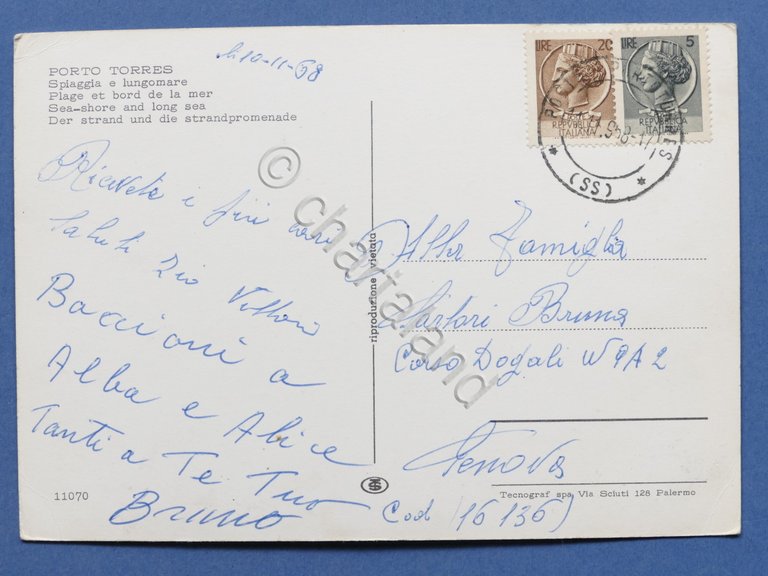 PORTO TORRES
Spiaggia e lungomare
Plage et bord de la mer
Sea-shore and long sea
Der strand und die strandpromenade
li 10-11-68
LIRE 20
REPUBBLICA
ITALIANA
LIRE 5
REPUBBLICA
ITALIANA
(SS)
Ricevete i più cari
saluti Zio Vittorio
Baccioni a
Alba e Alice
Tanti a Te Tuo
Bruno
riproduzione vietata
Alla Famiglia
Sartori Bruna
Corso Dogali
Genova
Cod (16136)
11070
Tecnograf spa Via Sciuti 128 Palermo
© charialand